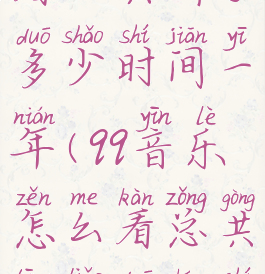 duō shǎo shí jiān yī
多少时间一
nián yīn lè
年(99音乐
zěn me kàn zǒng gòng
怎么看总共